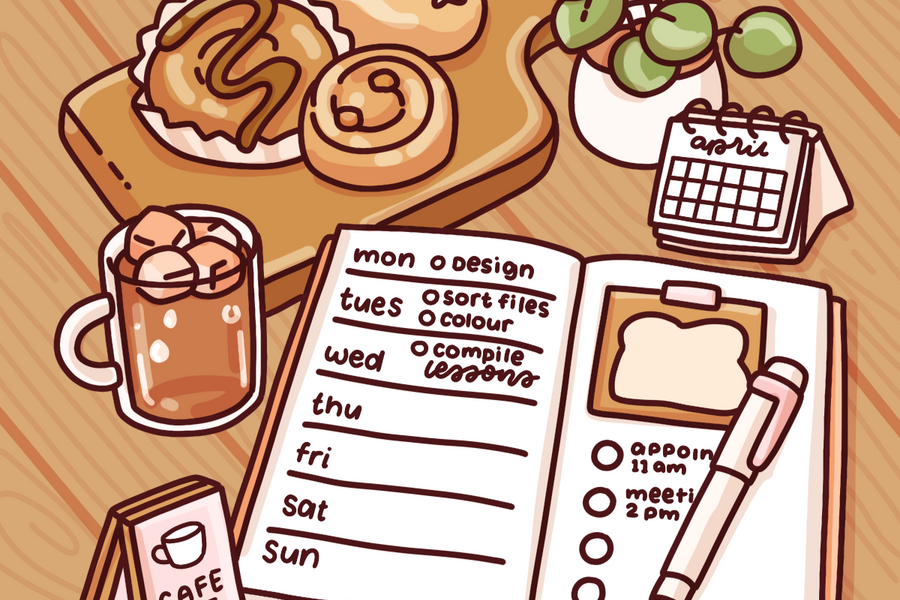 april
mon o Design
tues o sort files
o colour
wed o compile
lessons
thu
fri
sat
sun
appoin
11 am
meeti
2 pm
CAFE